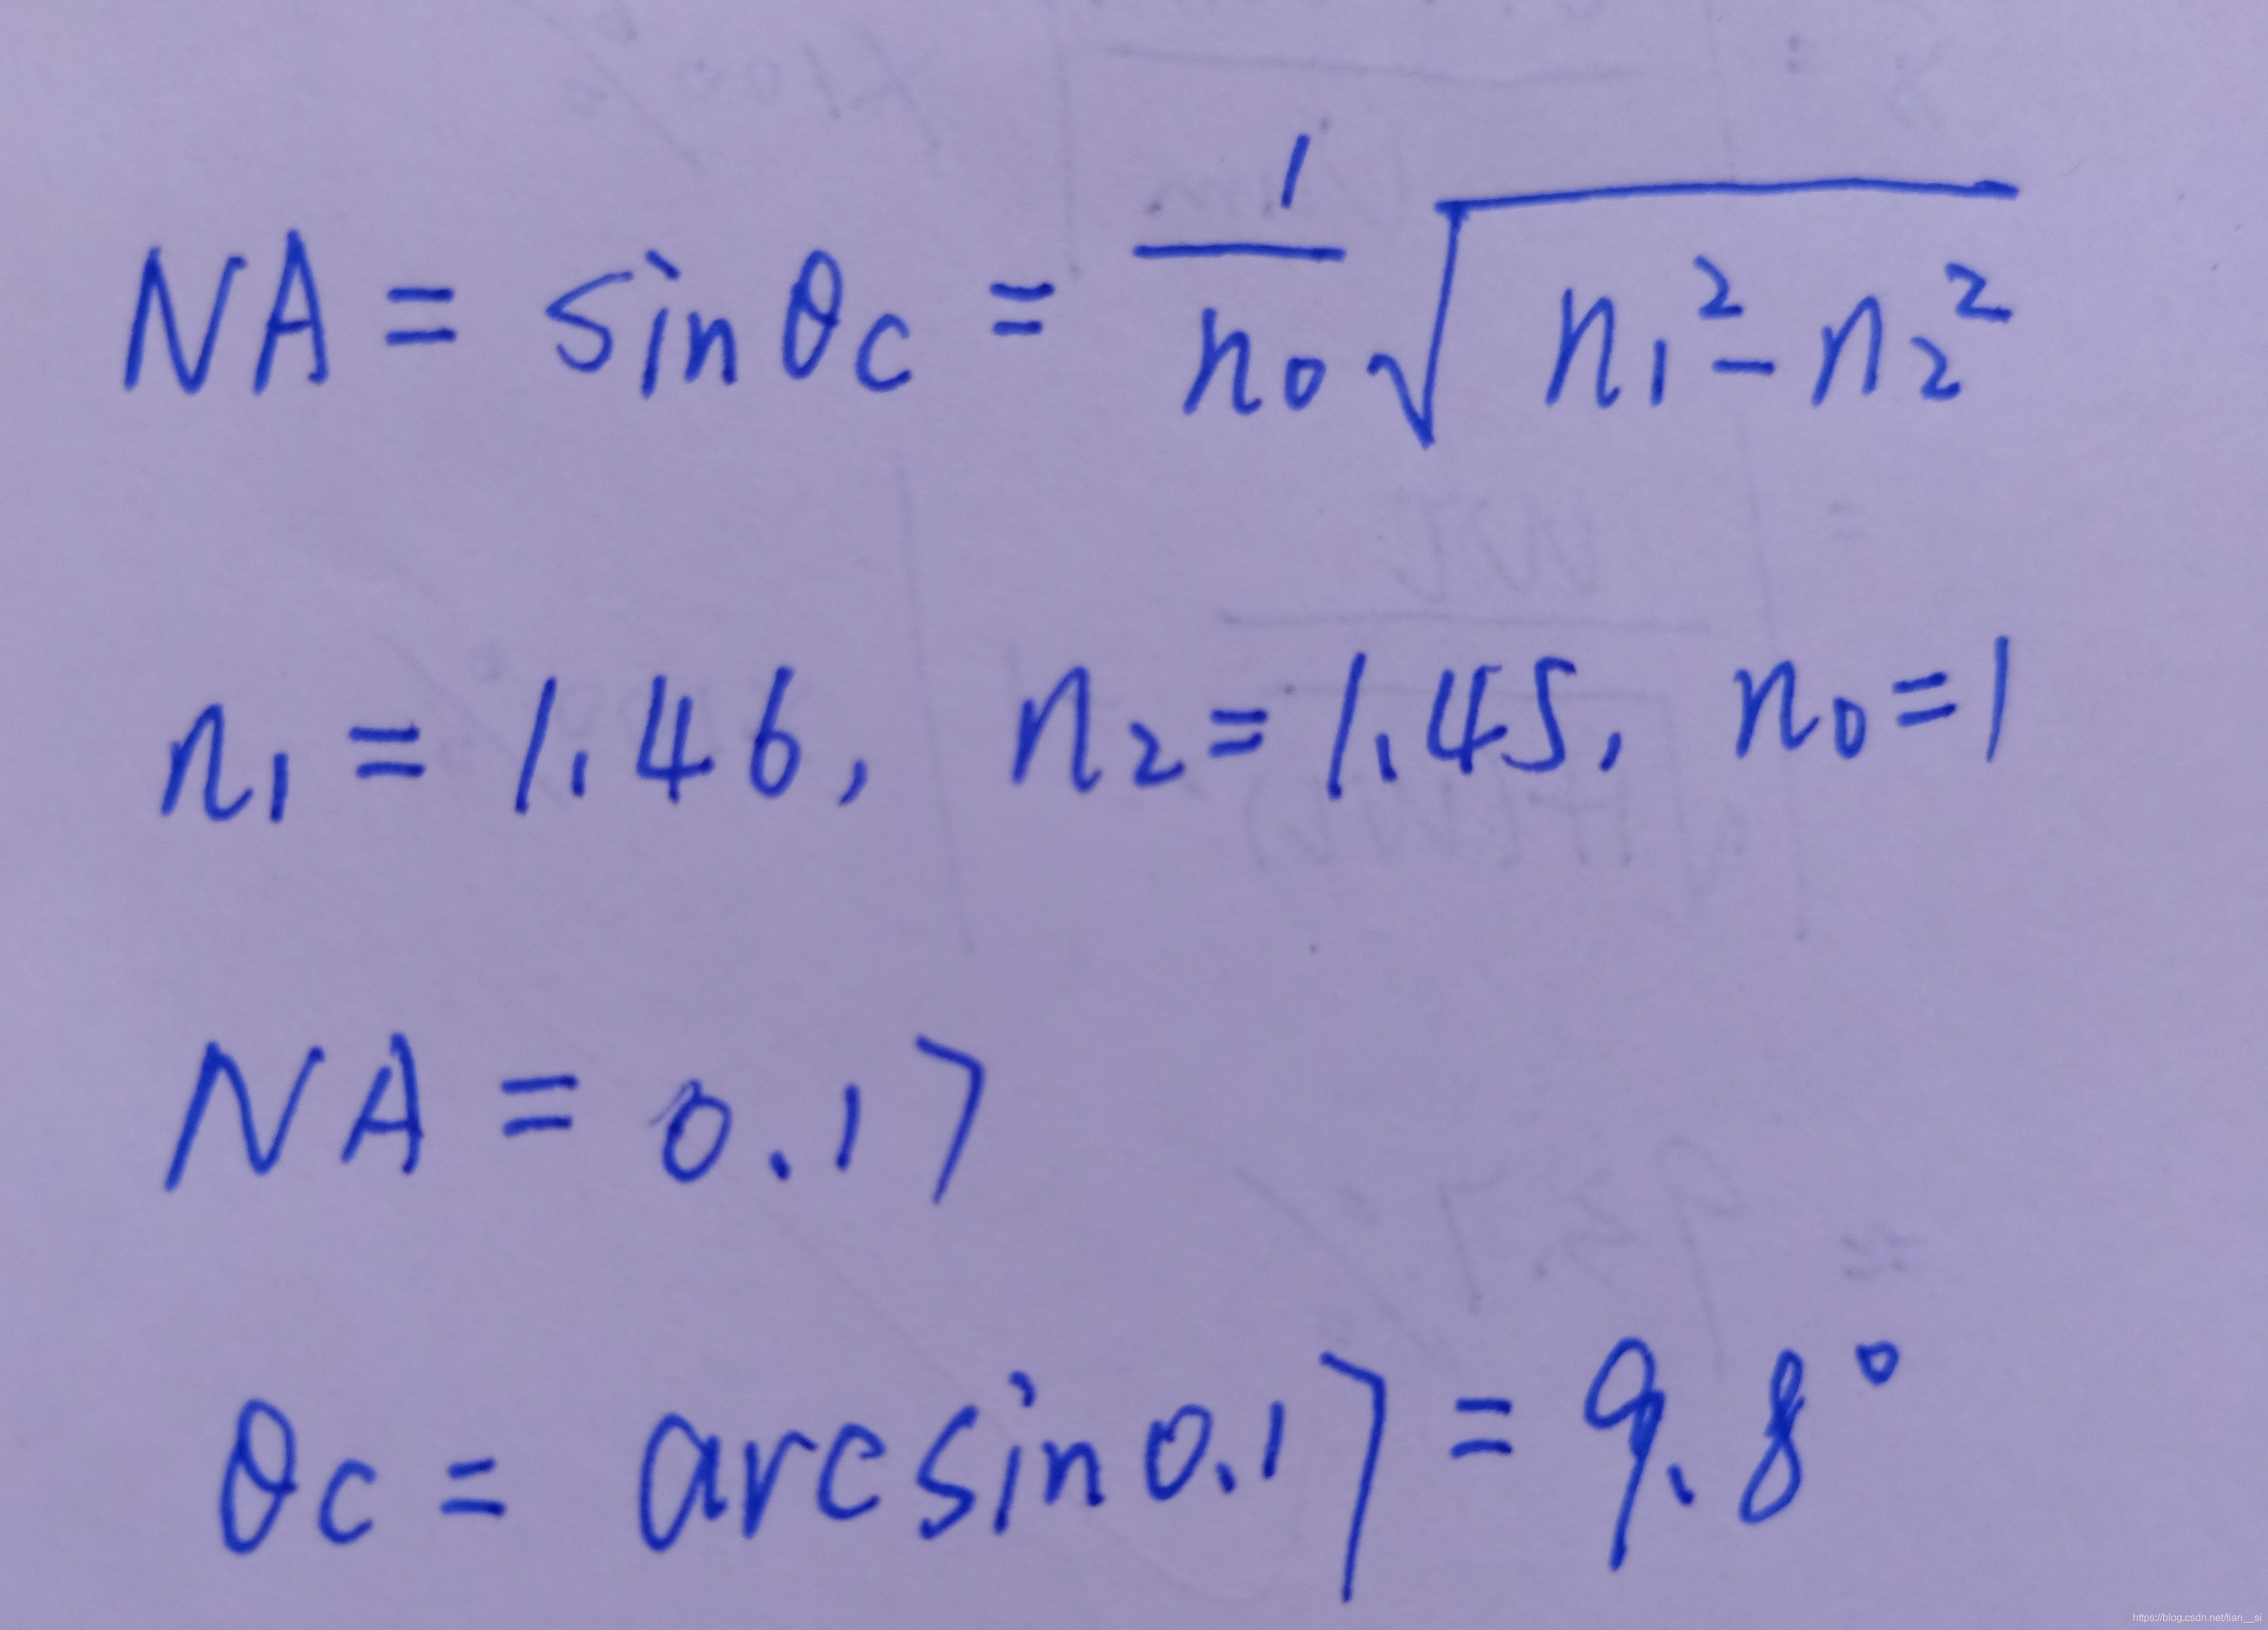 NA = sinθc = 1/n₀ √(n₁² - n₂²)
n₁ = 1.46, n₂ = 1.45, n₀ = 1
NA = 0.17
θc = arcsin0.17 = 9.8°
https://blog.csdn.net/tian__si